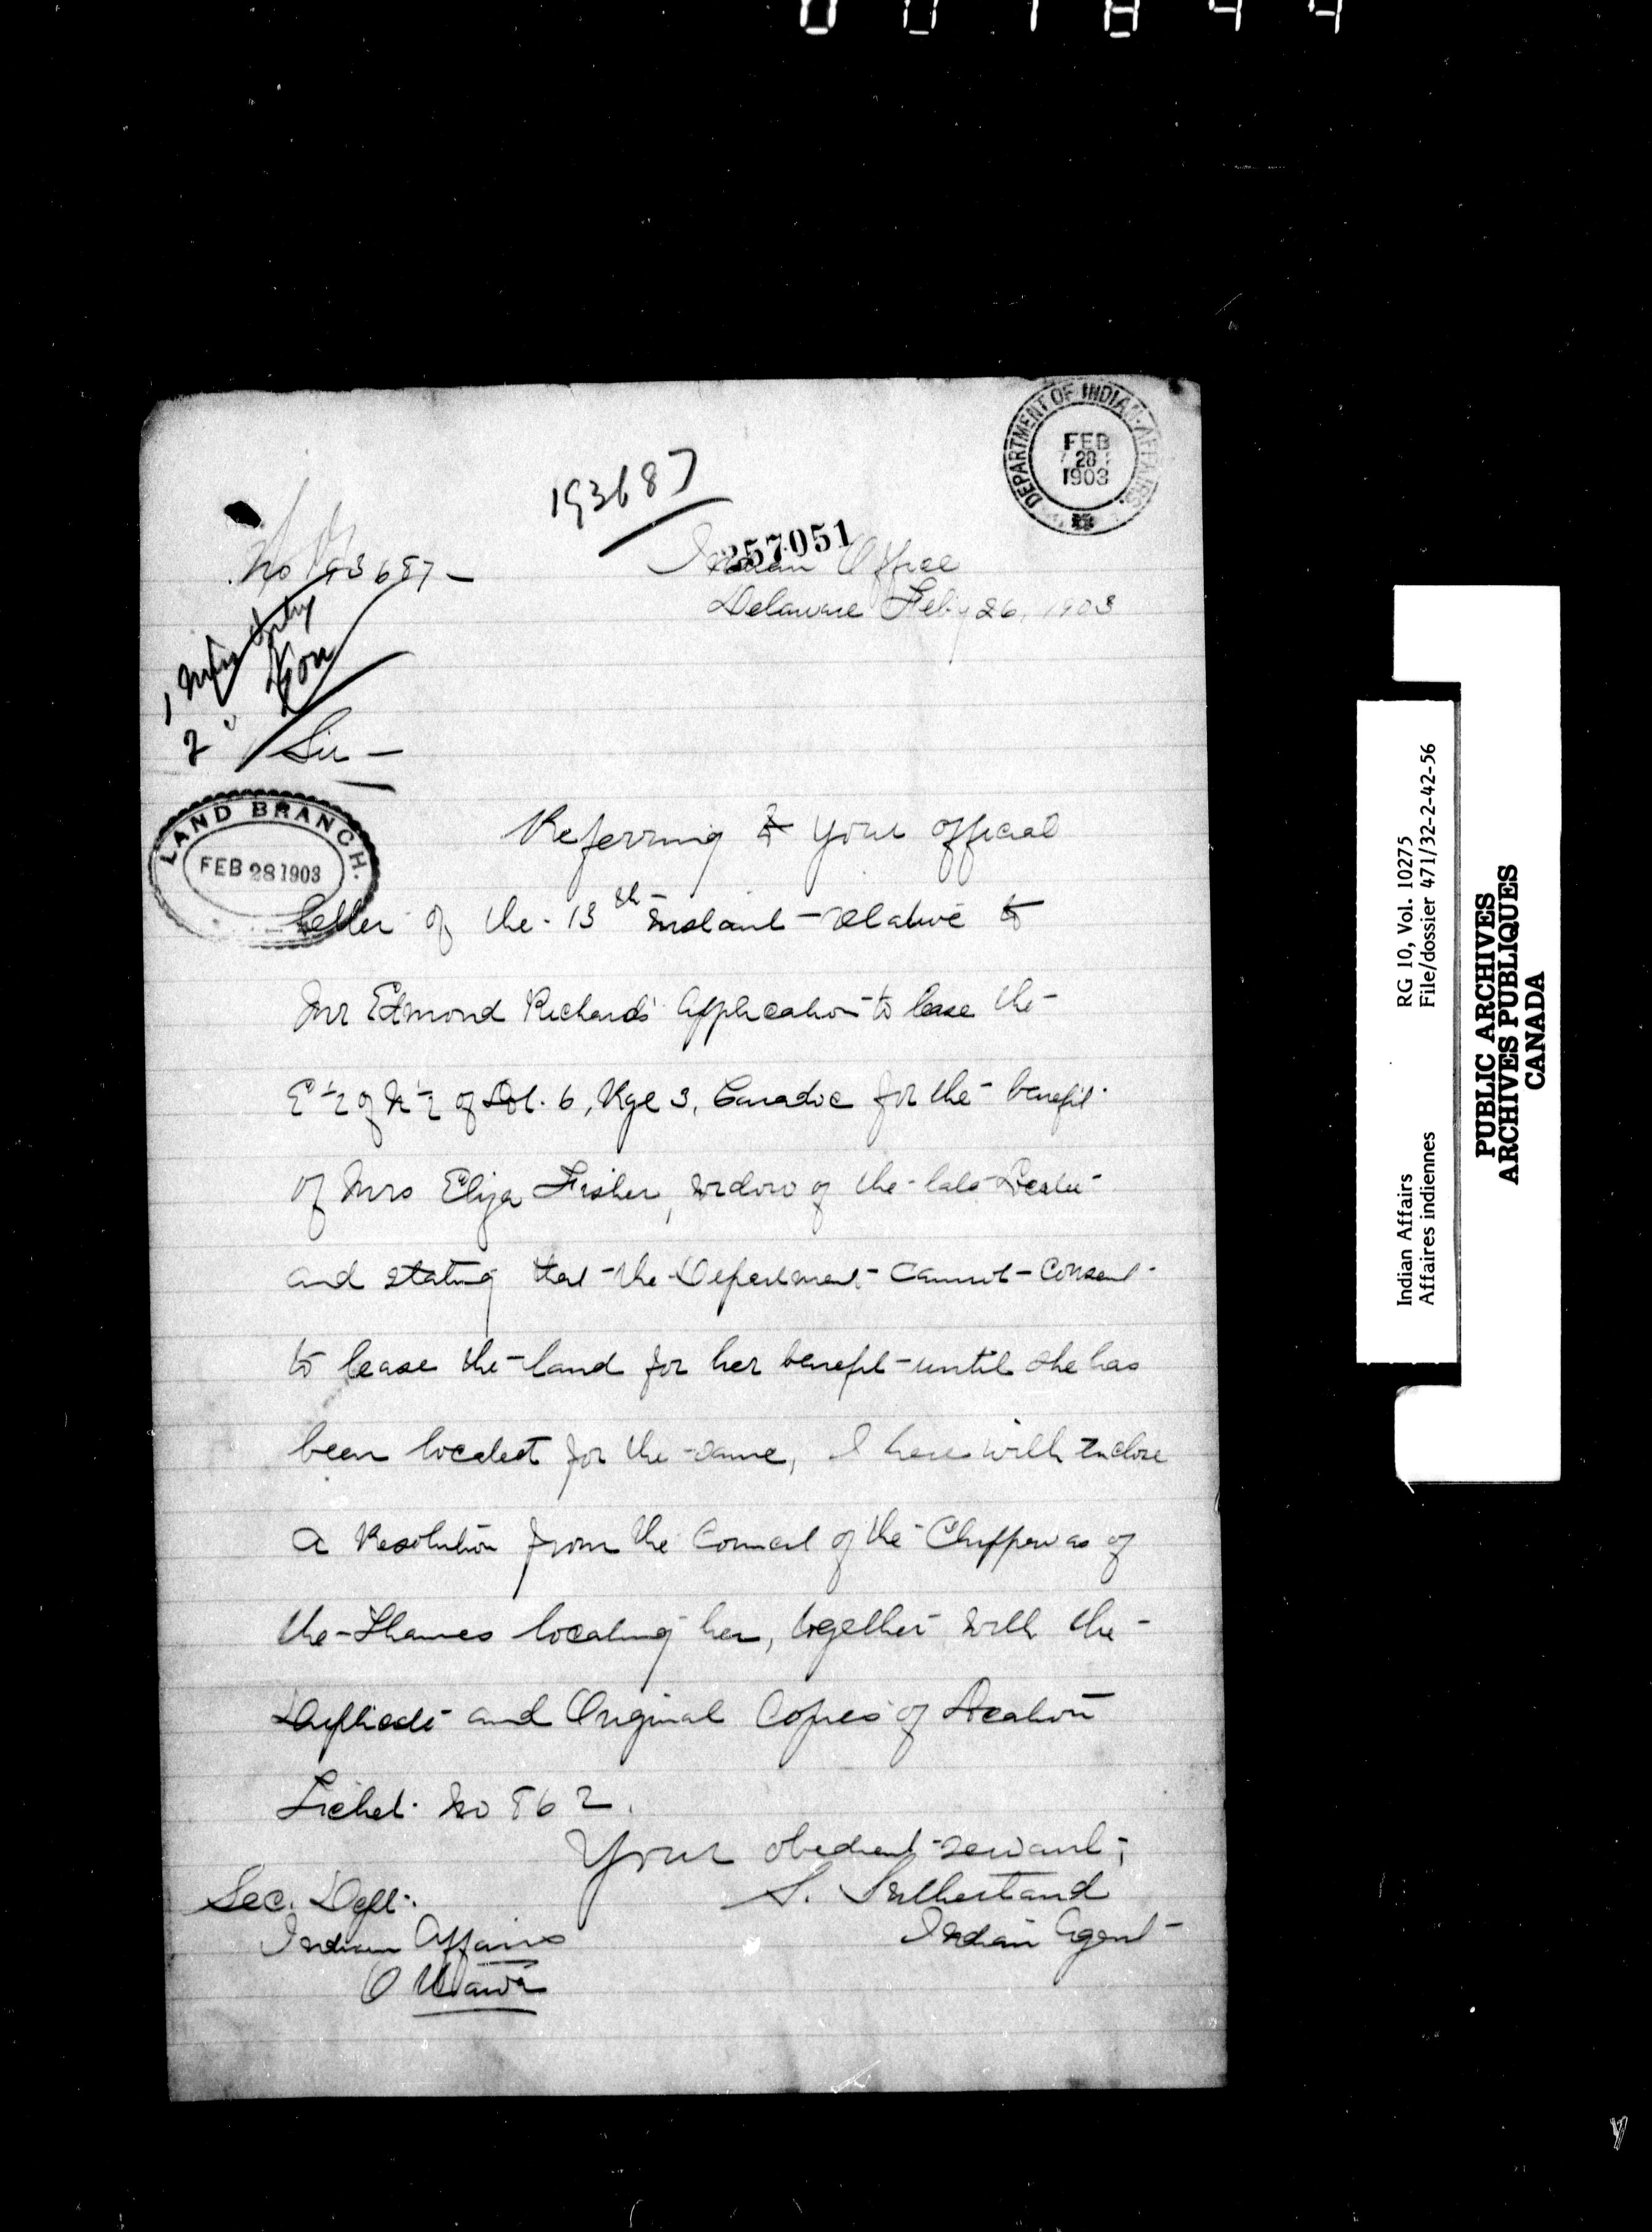 001844
DEPARTMENT OF INDIAN AFFAIRS.
FEB
28
1903
193687
257051
No 193687 -
Indian Office
Delaware Feby 26, 1903
1
2 "
Sir -
LAND BRANCH.
FEB 28 1903
Referring to your official
letter of the 13th instant relative to
Mr Edmond Richards' Application to lease the
E ½ of N ½ of Lot 6, Rge 3, Caradoc for the benefit
of Mrs Eliza Fisher, widow of the late Locatee
and stating that the Department cannot consent
to lease the land for her benefit until she has
been located for the same, I herewith enclose
a Resolution from the Council of the Chippewas of
the Thames locating her, together with the
Duplicate and Original Copies of Location
Ticket No 862.
Your obedient servant,
S. Sutherland
Indian Agent
Sec. Dept.
Indian Affairs
Ottawa
Indian Affairs RG 10, Vol. 10275
Affaires indiennes File/dossier 471/32-2-42-56
PUBLIC ARCHIVES
ARCHIVES PUBLIQUES
CANADA